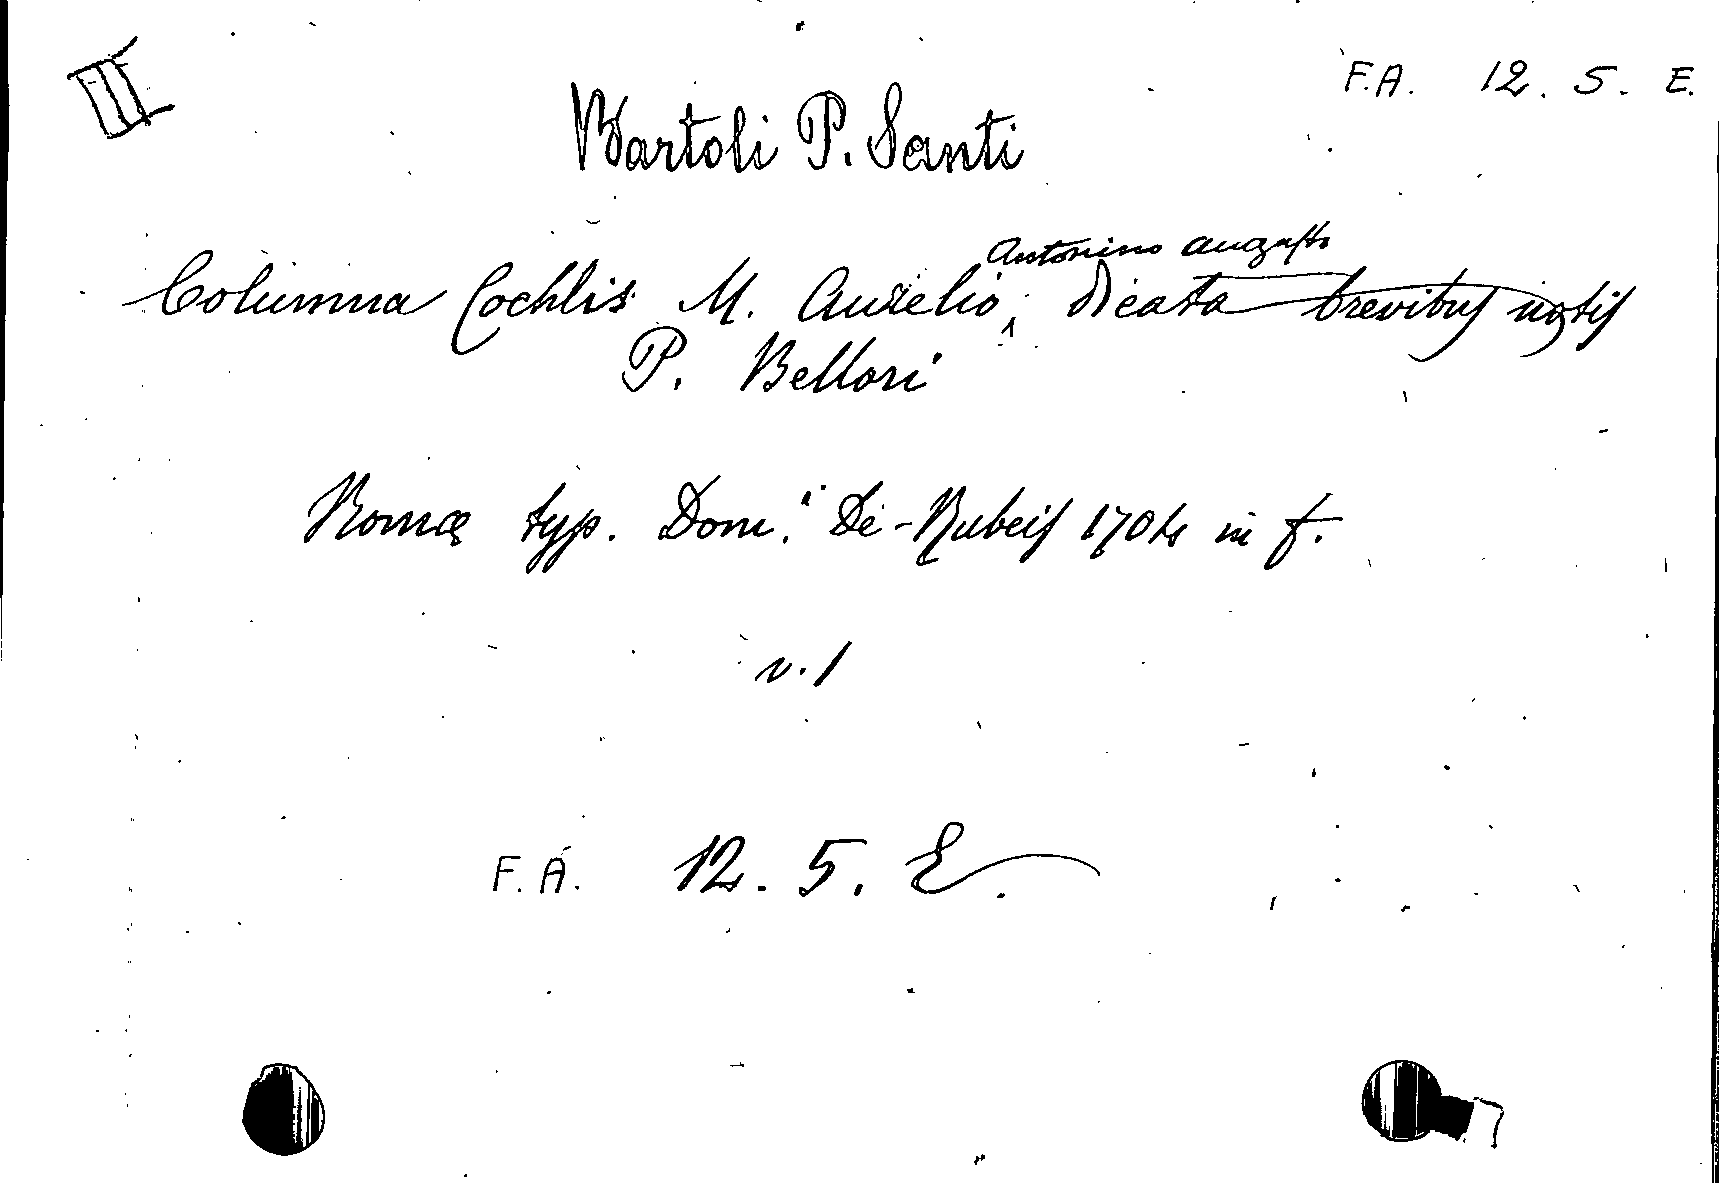 III
F.A. 12. 5. E.
Bartoli P. Santi
Antonino augusto
Columna Cochlis M. Aurelio dicata brevibus notis
P. Bellori
Romæ typ. Dom.i De-Rubeis 1704 in f.
v. 1
F.A. 12. 5. E.